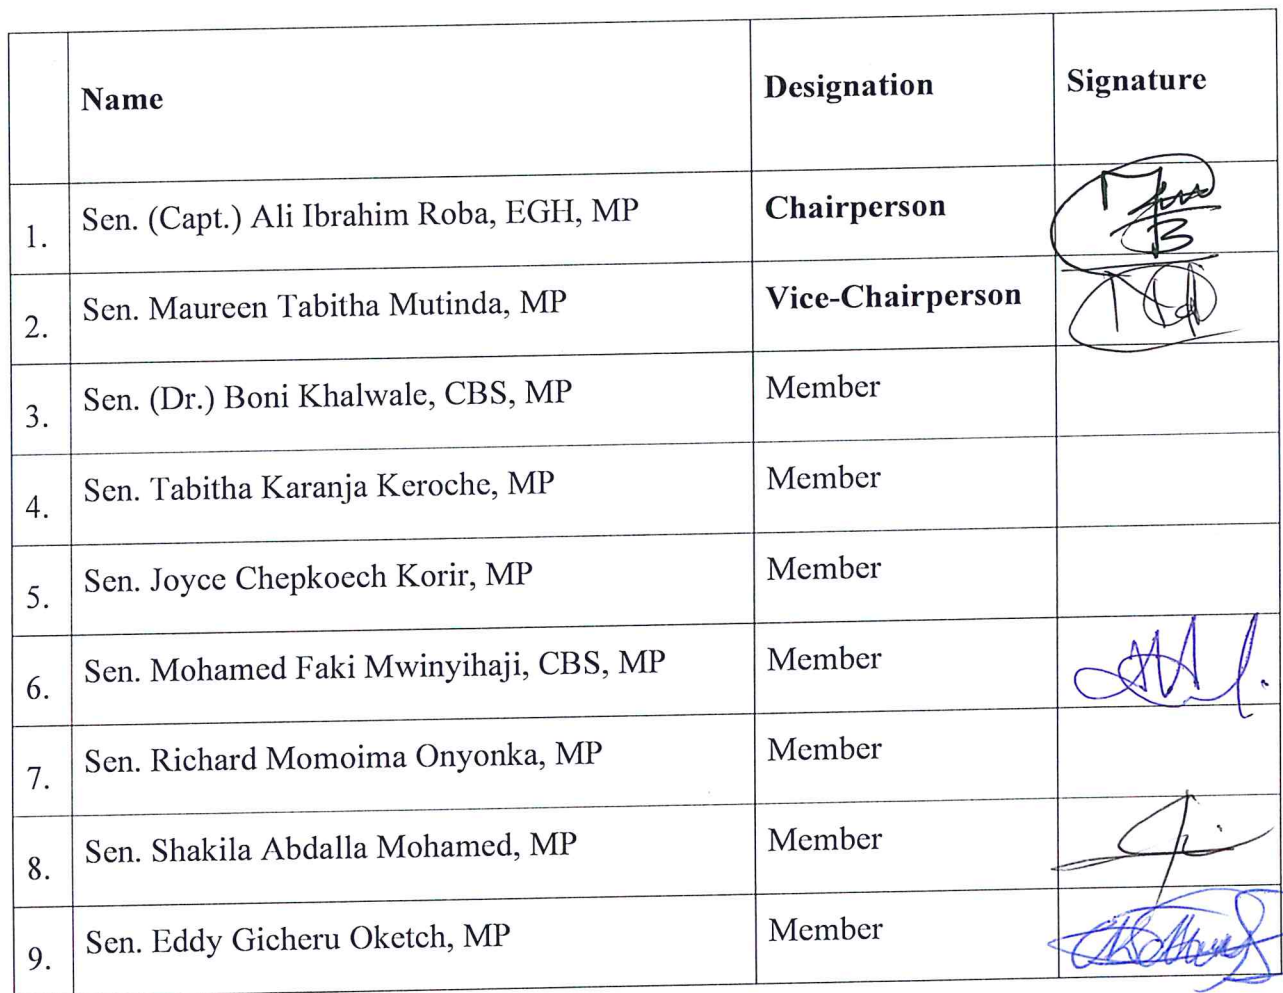 Name Designation Signature
1. Sen. (Capt.) Ali Ibrahim Roba, EGH, MP Chairperson
2. Sen. Maureen Tabitha Mutinda, MP Vice-Chairperson
3. Sen. (Dr.) Boni Khalwale, CBS, MP Member
4. Sen. Tabitha Karanja Keroche, MP Member
5. Sen. Joyce Chepkoech Korir, MP Member
6. Sen. Mohamed Faki Mwinyihaji, CBS, MP Member
7. Sen. Richard Momoima Onyonka, MP Member
8. Sen. Shakila Abdalla Mohamed, MP Member
9. Sen. Eddy Gicheru Oketch, MP Member